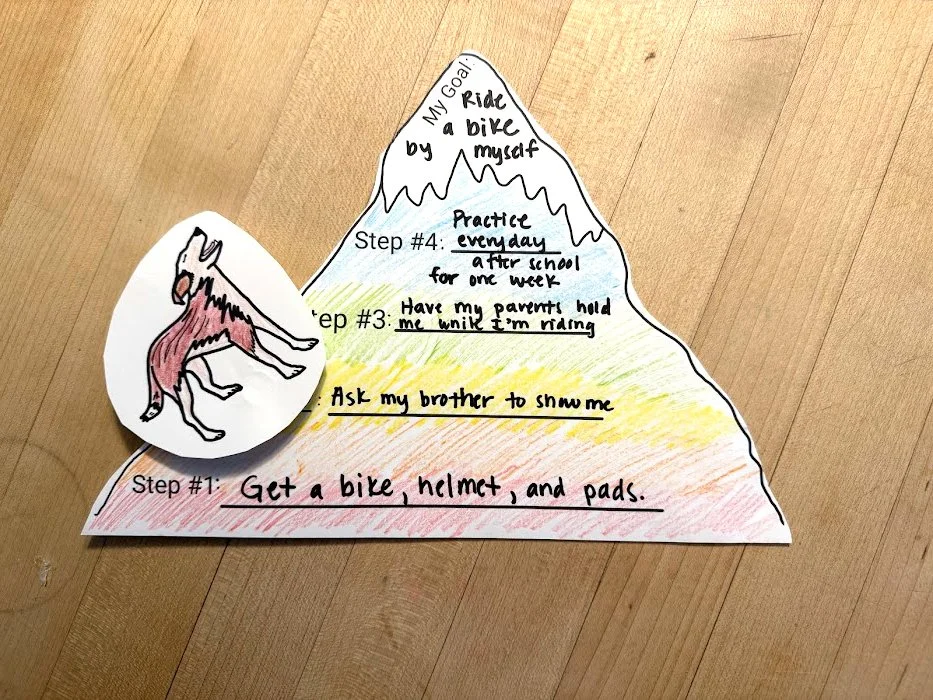 My Goal:
Ride
a bike
by myself
Practice
Step #4: everyday
after school
for one week
Have my parents hold
tep #3: me while I'm riding
: Ask my brother to show me
Step #1: Get a bike, helmet, and pads.